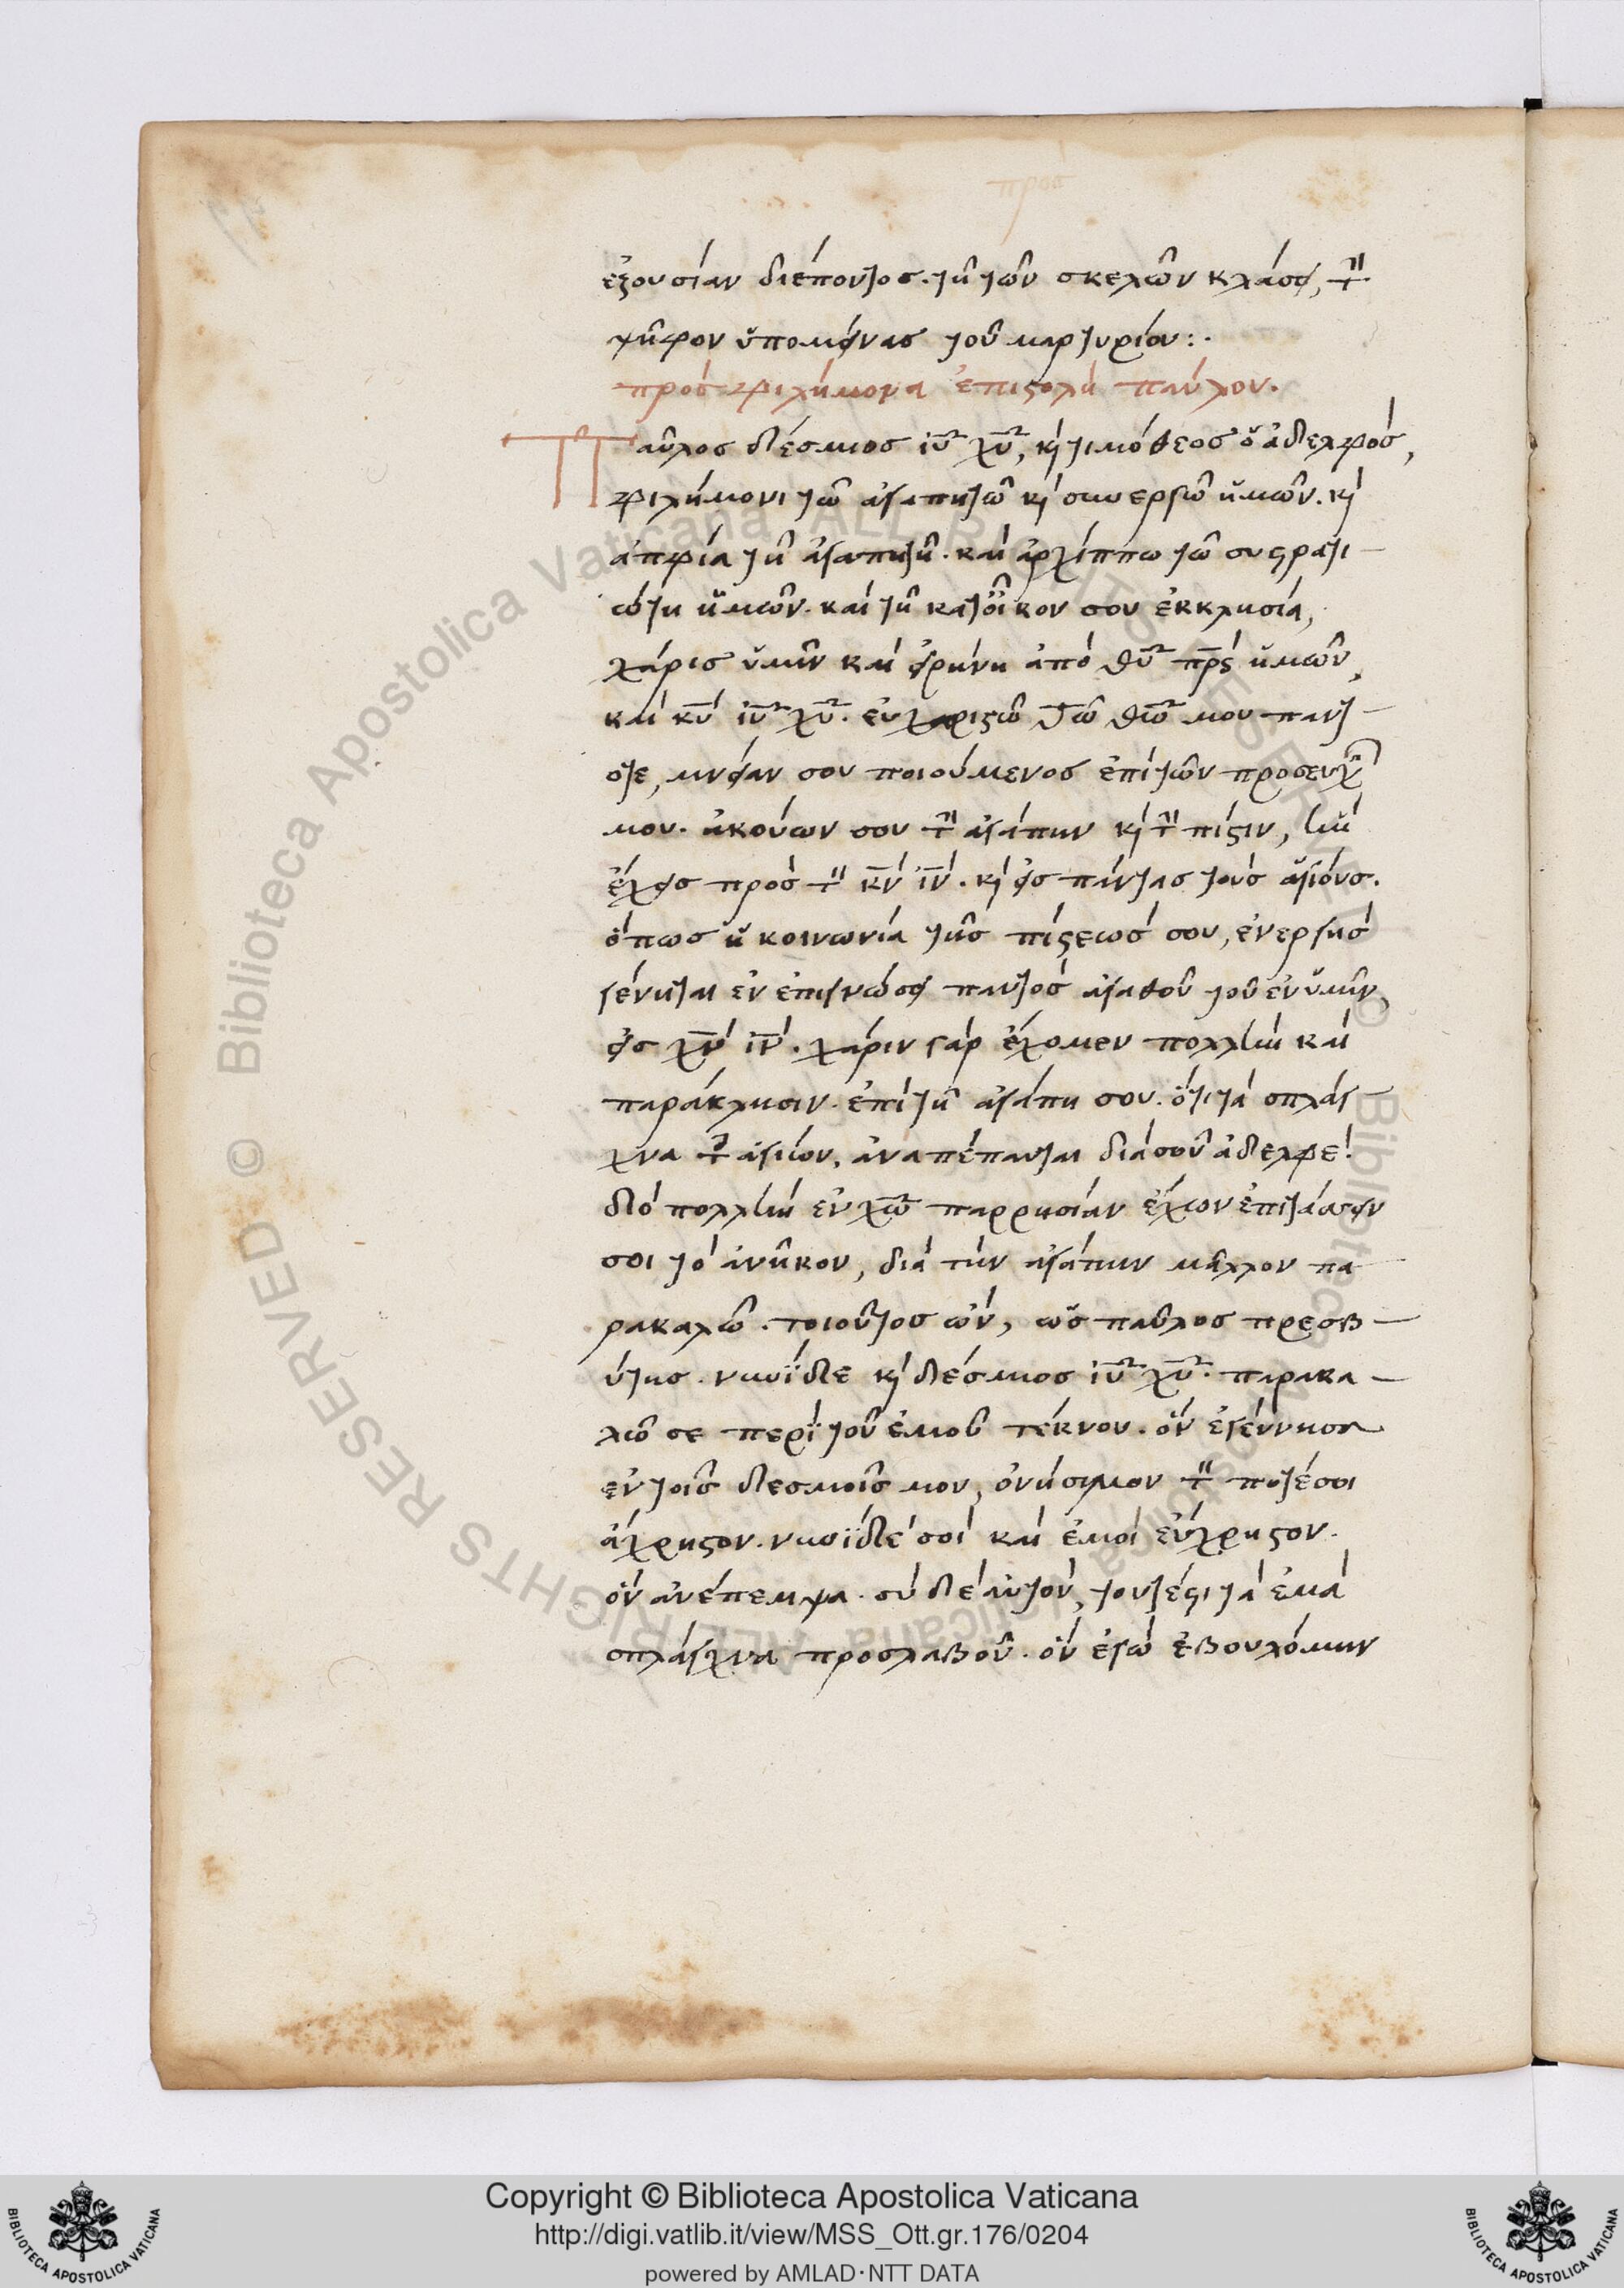 προσ
ἐξουσίαν διέποντος. τῆ τῶν σκελῶν κλάσει, τὴν
ψῆφον ὑπομείνας τοῦ μαρτυρίου:.
πρὸς φιλήμονα ἐπιστολὴ παύλου.
Παῦλος δέσμιος ἰῦ χῦ, κὶ τιμόθεος ὁ ἀδελφὸς,
φιλήμονι τῶ ἀγαπητῶ κὶ συνεργῶ ἡμῶν. κὶ
ἀπφία τῆ ἀγαπητῆ. καὶ ἀρχίππω τῶ συστρατι-
ώτη ἡμῶν. καὶ τῆ κατοῖκον σου ἐκκλησία,
χάρις ὑμῖν καὶ εἰρήνη ἀπὸ θῦ πρς ἡμῶν,
καὶ κῦ ἰῦ χῦ. εὐχαριστῶ τῶ θῶ μου παντ-
οτε, μνείαν σου ποιούμενος ἐπὶ τῶν προσευχῶν
μου. ἀκούων σου τὴν ἀγάπην κὶ τὴν πίστιν, ἣν
ἔχεις πρὸς τὸν κν ἰν. κὶ εἰς πάντας τοὺς ἁγίους.
ὅπως ἡ κοινωνία τῆς πίστεώς σου, ἐνεργὴς
γένηται ἐν ἐπιγνώσει παντὸς ἀγαθοῦ τοῦ ἐν ὑμῖν,
εἰς χν ἰν. χάριν γὰρ ἔχομεν πολλὴν καὶ
παράκλησιν. ἐπὶ τῆ ἀγάπη σου. ὅτι τὰ σπλάγ
χνα τῶν ἁγίων, ἀναπέπαυται διὰ σοῦ ἀδελφέ.
διὸ πολλὴν ἐν χῶ παρρησίαν ἔχων ἐπιτάσσειν
σοι τὸ ἀνῆκον, διὰ τὴν ἀγάπην μᾶλλον πα-
ρακαλῶ. τοιοῦτος ὢν, ὡς παῦλος πρεσβ-
ύτης. νυνὶ δὲ κὶ δέσμιος ἰῦ χῦ. παρακα-
λῶ σε περὶ τοῦ ἐμοῦ τέκνου. ὃν ἐγέννησα
ἐν τοῖς δεσμοῖς μου, ὀνήσιμον τὸν ποτέ σοι
ἄχρηστον. νυνὶ δέ σοι καὶ ἐμοὶ εὔχρηστον.
ὃν ἀνέπεμψα. σὺ δὲ αὐτὸν, τουτέστι τὰ ἐμὰ
σπλάγχνα προσλαβοῦ. ὃν ἐγὼ ἐβουλόμην
Copyright © Biblioteca Apostolica Vaticana
http://digi.vatlib.it/view/MSS_Ott.gr.176/0204
powered by AMLAD·NTT DATA
BIBLIOTECA APOSTOLICA VATICANA
BIBLIOTECA APOSTOLICA VATICANA